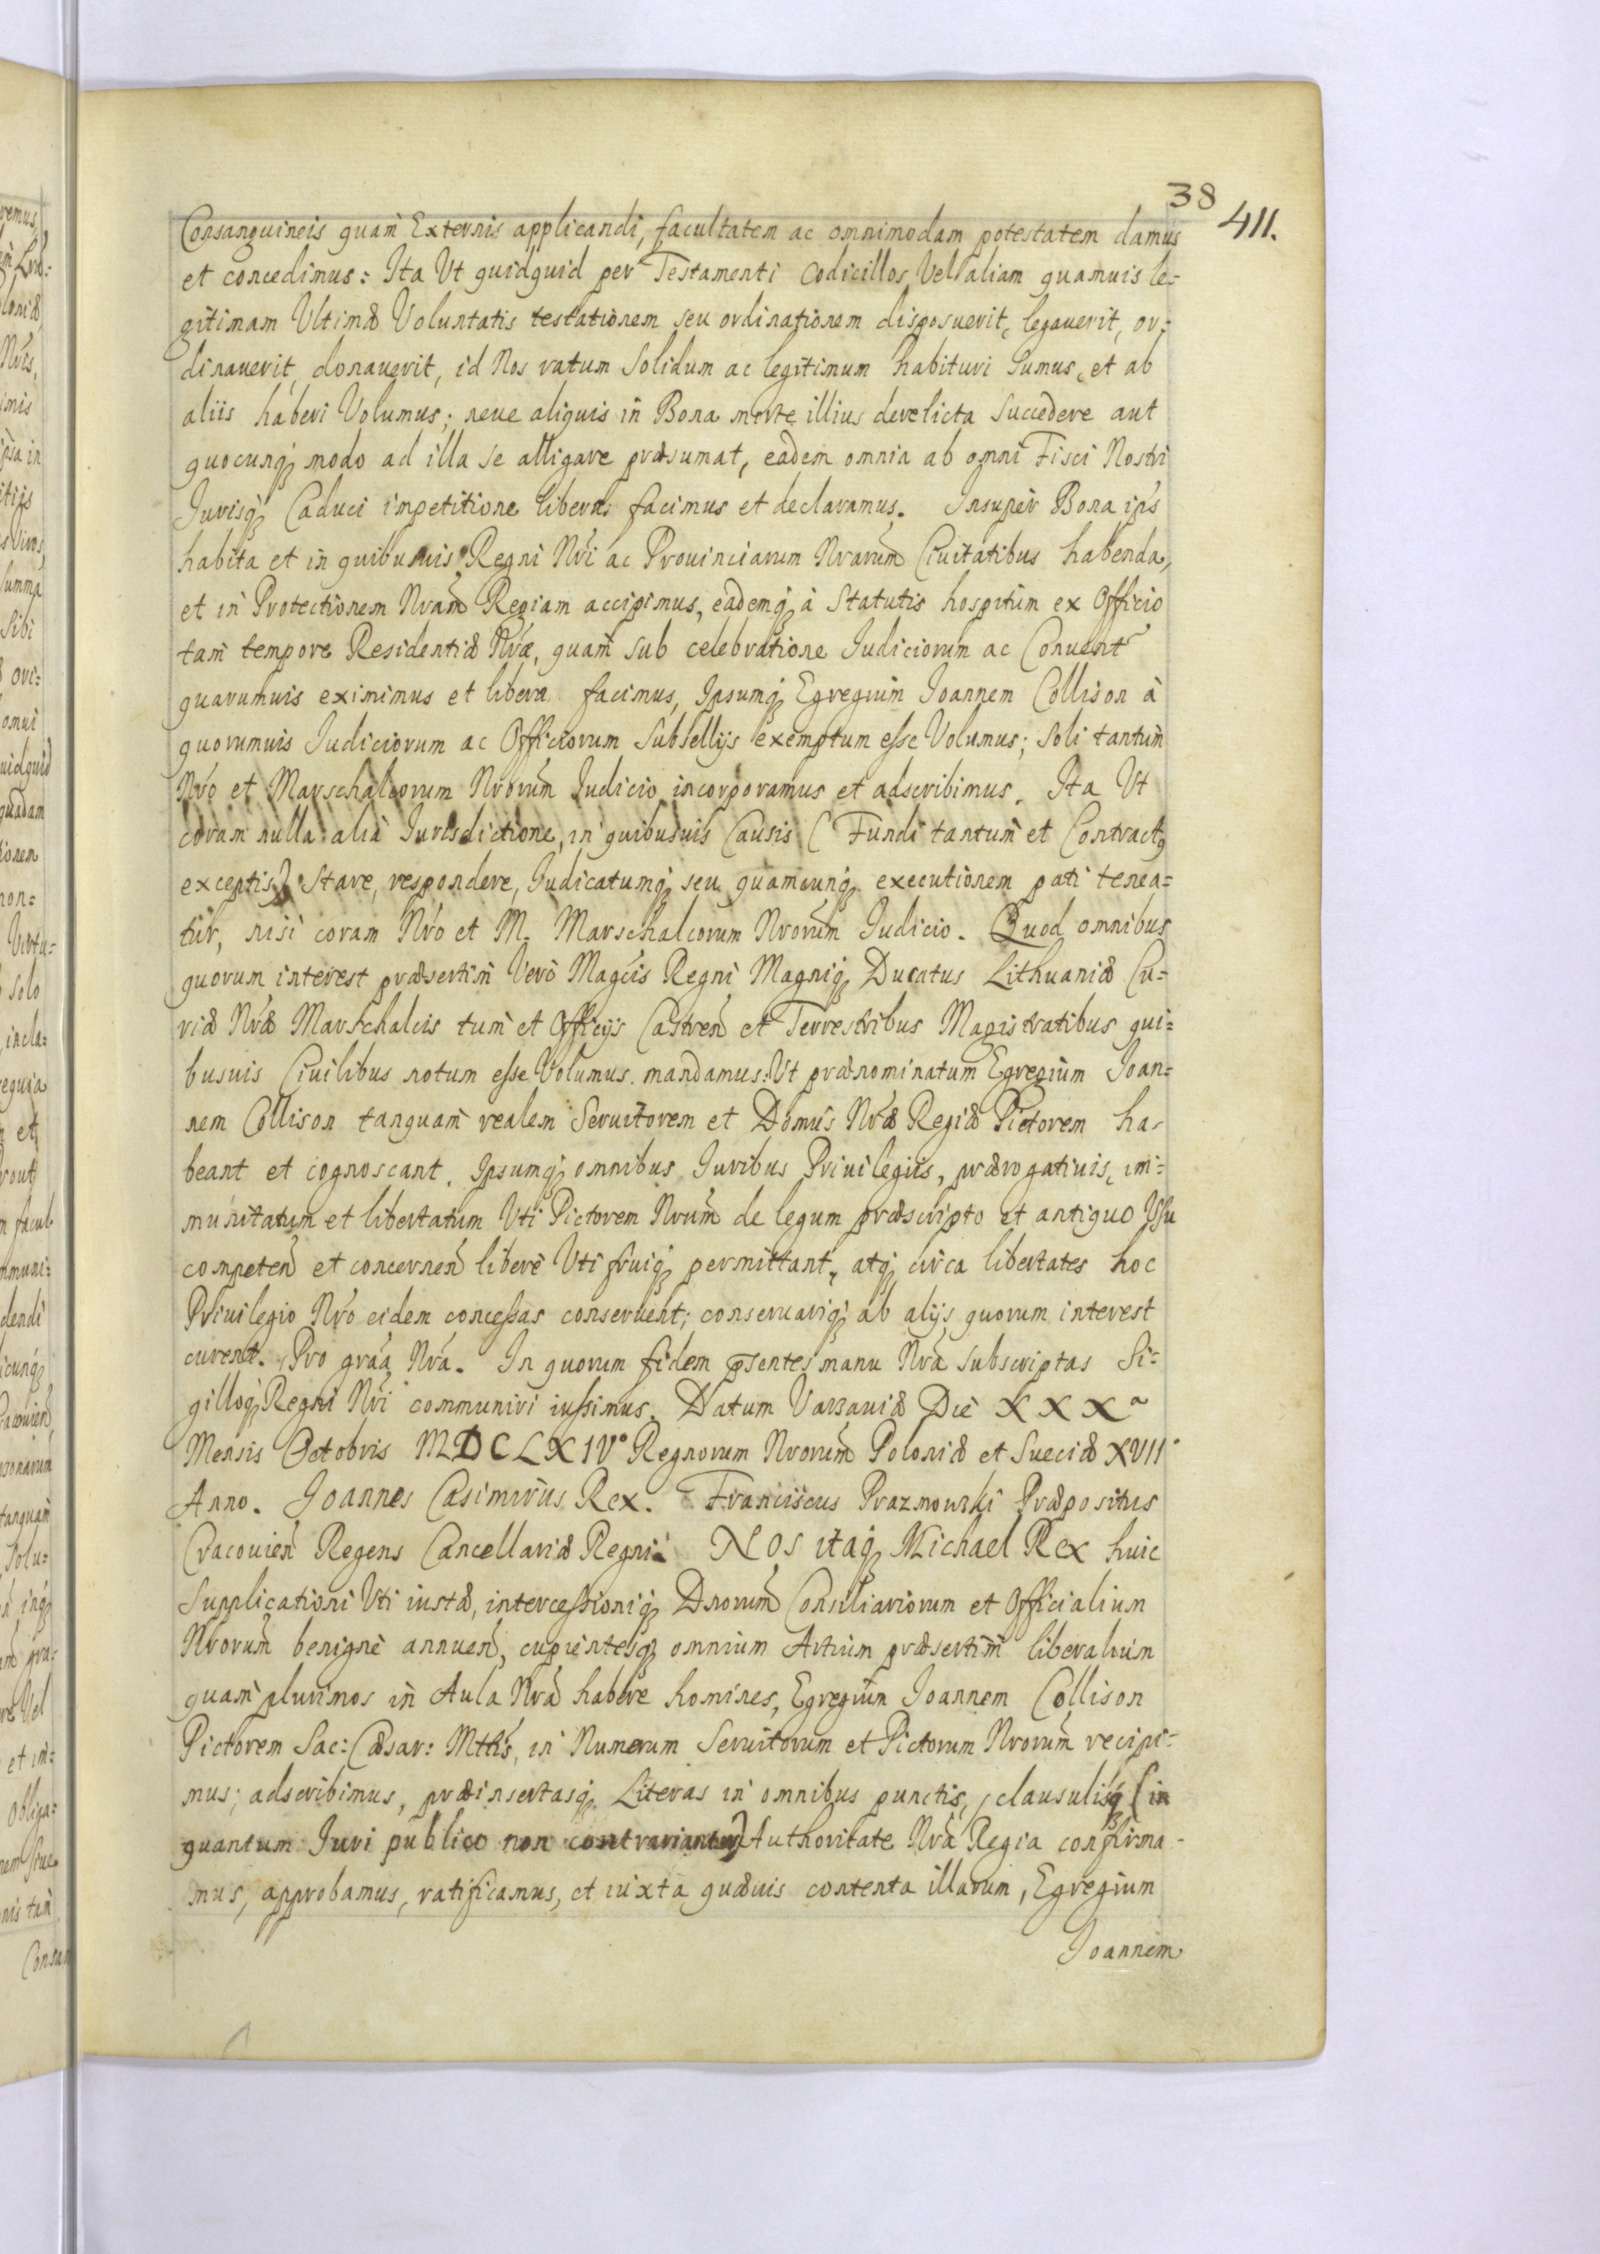 38
411.
Consanguineis quam Externis applicandi, facultatem ac omnimodam potestatem damus
et concedimus: Ita Ut quidquid per Testamenti Codicillos Vel aliam quamuis le=
gitimam Ultimæ Voluntatis testationem seu ordinationem disposuerit, legauerit, or=
dinauerit, donauerit, id Nos ratum Solidum ac legitimum habituri Sumus, et ab
aliis haberi Volumus; neue aliquis in Bona morte illius derelicta Succedere aut
quocunq modo ad illa se alligare præsumat, eadem omnia ab omni Fisci Nostri
Jurisq Caduci impetitione libera facimus et declaramus. Insuper Bona ips
habita et in quibusuis Regni Nri ac Prouinciarum Nrarum Ciuitatibus habenda,
et in Protectionem Nram Regiam accipimus, eademq à Statutis hospitum ex Officio
tam tempore Residentiæ Nræ, quam sub celebratione Judiciorum ac Conuent
quarumuis eximimus et libera facimus, Ipsumq Egregium Joannem Collison à
quorumuis Judiciorum ac Officiorum Subsellijs exemptum esse Volumus; Soli tantum
Nro et Marschalcorum Nrorum Judicio incorporamus et adscribimus. Ita Ut
coram nulla alia Jurisdictione, in quibusuis Causis ( Fundi tantum et Contract9
exceptis) Stare, respondere, Judicatumq seu quamcunq executionem pati tenea=
tur, nisi coram Nro et M. Marschalcorum Nrorum Judicio. Quod omnibus
quorum interest præsertim Vero Magcis Regni Magniq Ducatus Lithuaniæ Cu=
riæ Nræ Marschalcis tum et Officijs Castren et Terrestribus Magistratibus qui=
busuis Ciuilibus notum esse Volumus. mandamus: Ut prænominatum Egregium Joan=
nem Collison tanquam realem Seruitorem et Domus Nræ Regiæ Pictorem ha=
beant et cognoscant. Ipsumq omnibus Juribus Priuilegiis, prærogatiuis, im=
munitatum et libertatum Uti Pictorem Nrum de legum præscripto et antiquo Usu
competen et concernen libere Uti fruiq permittant, atq circa libertates hoc
Priuilegio Nro eidem concessas conseruent; conseruariq ab alijs quorum interest
curent. Pro graa Nra. In quorum fidem psentes manu Nra subscriptas Si=
gilloq Regni Nri communiri iussimus. Datum Varsauiæ Die XXXa
Mensis Octobris MDCLXIVo Regnorum Nrorum Poloniæ et Sueciæ XVIIo
Anno. Joannes Casimirus Rex. Franciscus Prazmouski Præpositus
Cracouien Regens Cancellariæ Regni. Nos itaq Michael Rex huic
Supplicationi Uti iustæ, intercessioniq Dnorum Consiliariorum et Officialium
Nrorum benigne annuen, cupientesq omnium Artium præsertim liberalium
quam plurimos in Aula Nra habere homines, Egregium Joannem Collison
Pictorem Sac: Cæsar: Mttis, in Numerum Seruitorum et Pictorum Nrorum recipi=
mus; adscribimus, præinsertasq Literas in omnibus punctis, clausulisq (in
quantum Juri publico non contrariantur) Authoritate Nra Regia confirma-
mus, approbamus, ratificamus, et iuxta quæuis contenta illarum, Egregium
Joannem